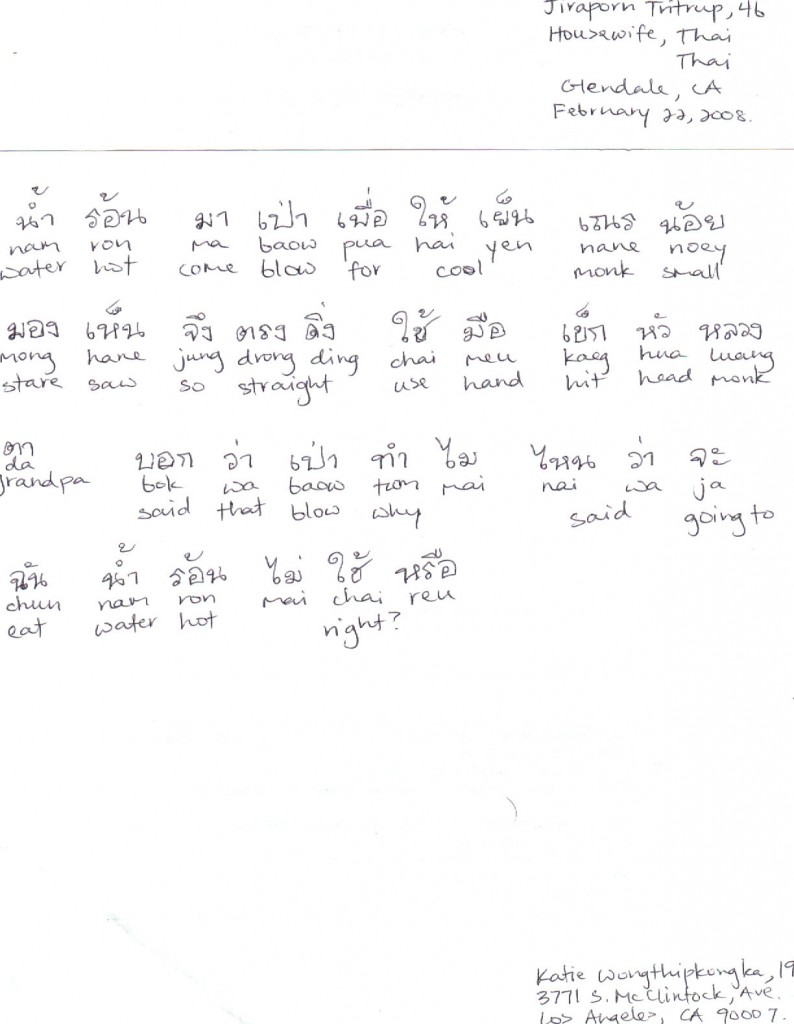 Jiraporn Tritrup, 46
Housewife, Thai
Thai
Glendale, CA
February 22, 2008.
น้ำ ร้อน มา เป่า เพื่อ ให้ เย็น เณร น้อย
nam ron ma baow pua hai yen nane noey
water hot come blow for cool monk small
มอง เห็น จึง ตรง ดิ่ง ใช้ มือ เขก หัว หลวง
mong hane jung drong ding chai meu kaeg hua luang
stare saw so straight use hand hit head monk
ตา บอก ว่า เป่า ทำ ไม ไหน ว่า จะ
da bok wa baow tum mai nai wa ja
grandpa said that blow why said going to
ฉัน น้ำ ร้อน ไม่ ใช้ หรือ
chun nam ron mai chai reu
eat water hot right?
Katie Wongthipkongka, 19
3771 S. McClintock, Ave.
Los Angeles, CA 90007.